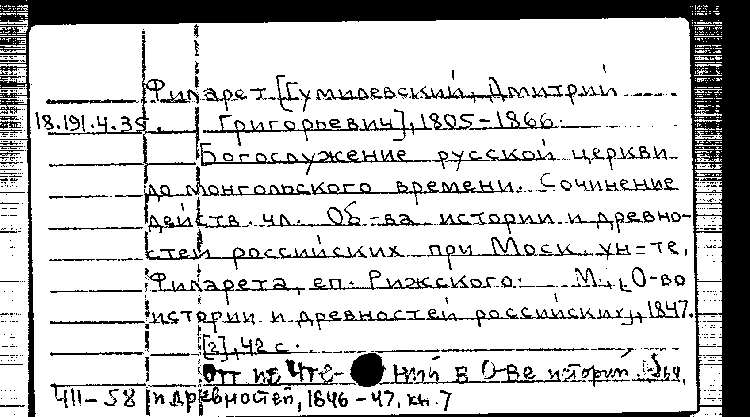 Филарет [Гумилевский, Дмитрий
18.191.4.35. Григорьевич], 1805-1866.
Богослужение русской церкви
до монгольского времени. Сочинение
действ. чл. Об-ва истории и древно-
стей российских при Моск. ун-те,
Филарета, еп. Рижского. М., О-во
истории и древностей российских, 1847.
[2], 42 с.
Отт из Чте- ний в О-ве истории
411-58 и древностей, 1846-47, кн. 7